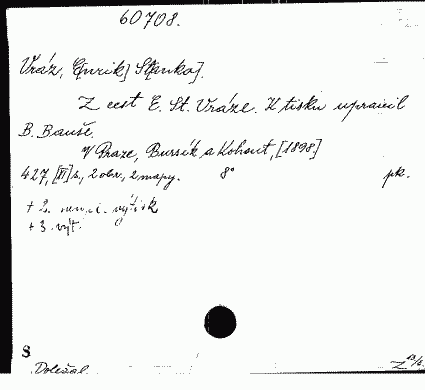 60708.
Vráz, E[nrik] St[anko].
Z cest E. St. Vráze. K tisku upravil
B. Bauše.
V Praze, Bursík a Kohout, [1898]
427, [III] s., 2 obr., 2 mapy. 8° pk.
+ 2. výtisk
+ 3. výt.
S
Doležal